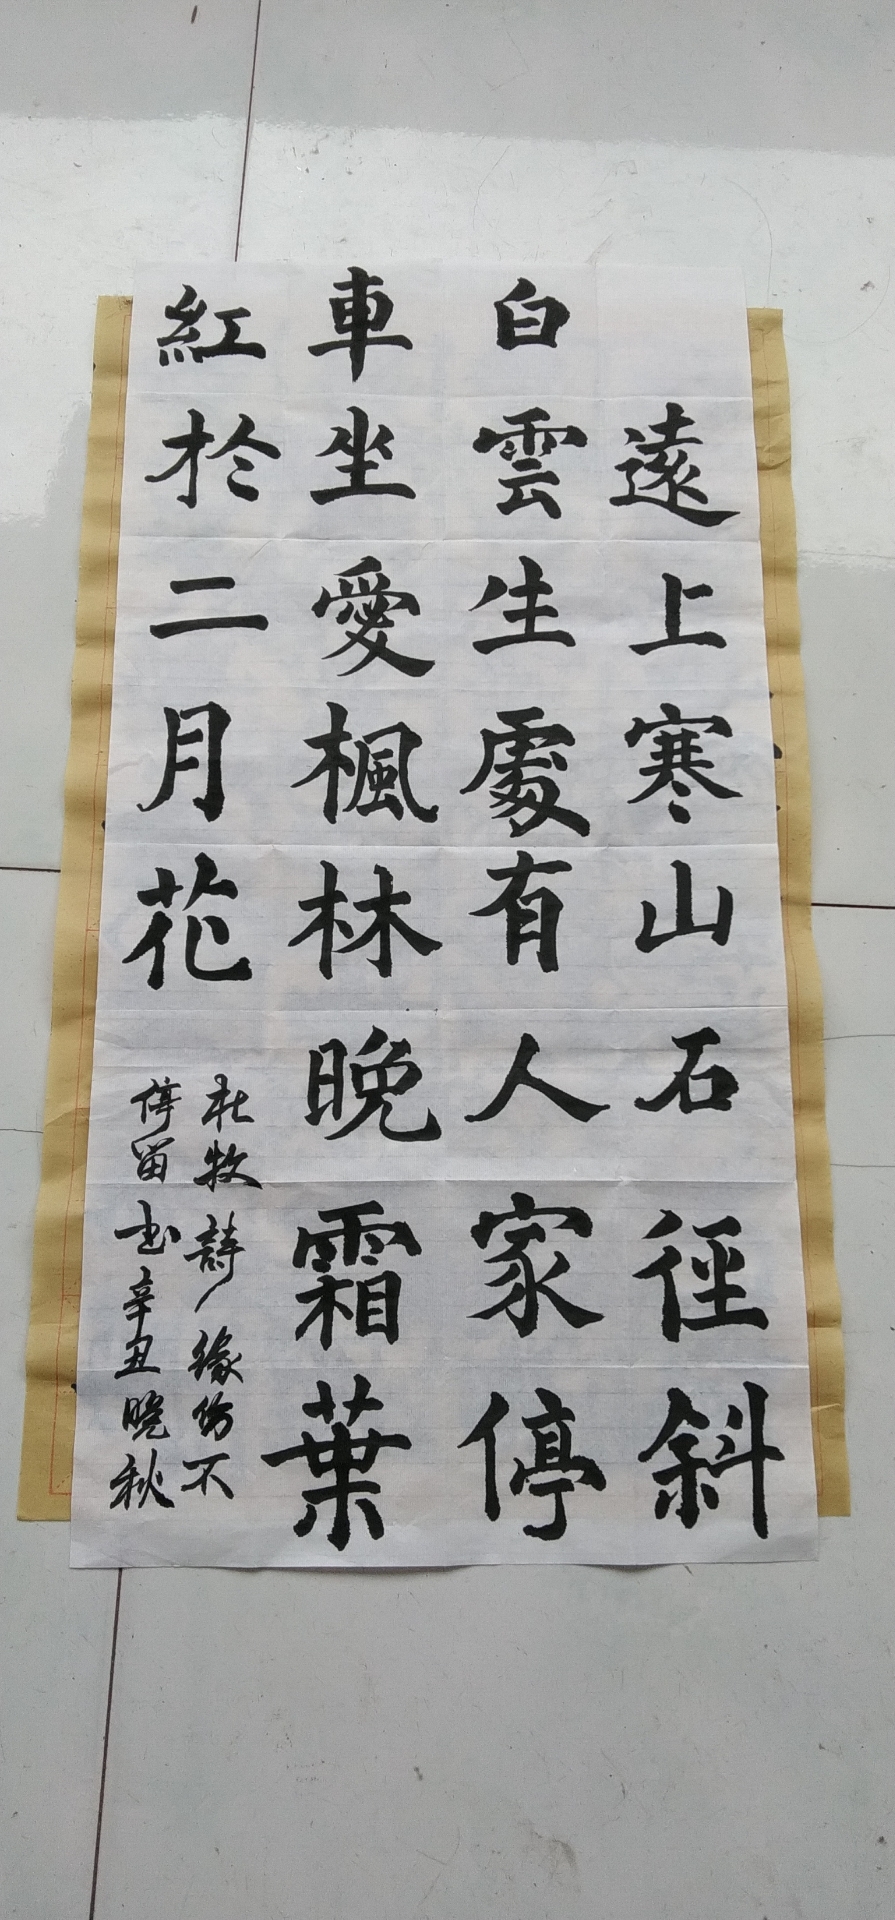 遠上寒山石徑斜
白雲生處有人家停
車坐愛楓林晚霜葉
紅於二月花
杜牧詩緣份不
停留書辛丑晚秋